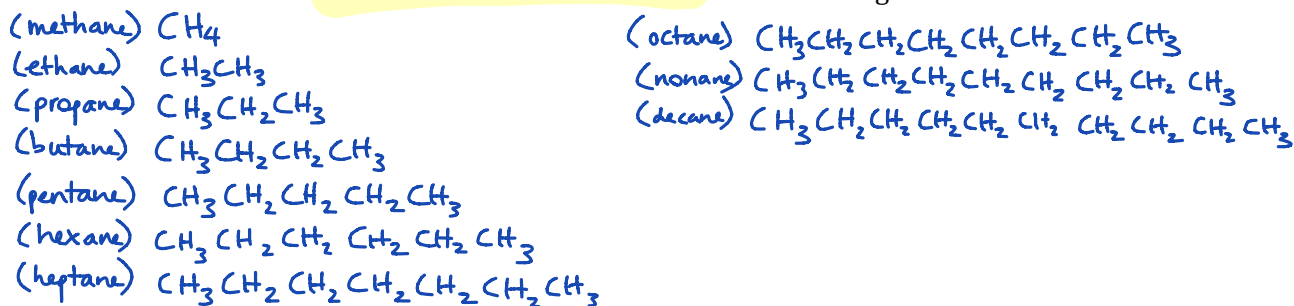 (methane) CH4
(ethane) CH3CH3
(propane) CH3CH2CH3
(butane) CH3CH2CH2CH3
(pentane) CH3CH2CH2CH2CH3
(hexane) CH3CH2CH2CH2CH2CH3
(heptane) CH3CH2CH2CH2CH2CH2CH3
(octane) CH3CH2CH2CH2CH2CH2CH2CH3
(nonane) CH3CH2CH2CH2CH2CH2CH2CH2CH3
(decane) CH3CH2CH2CH2CH2CH2CH2CH2CH2CH3